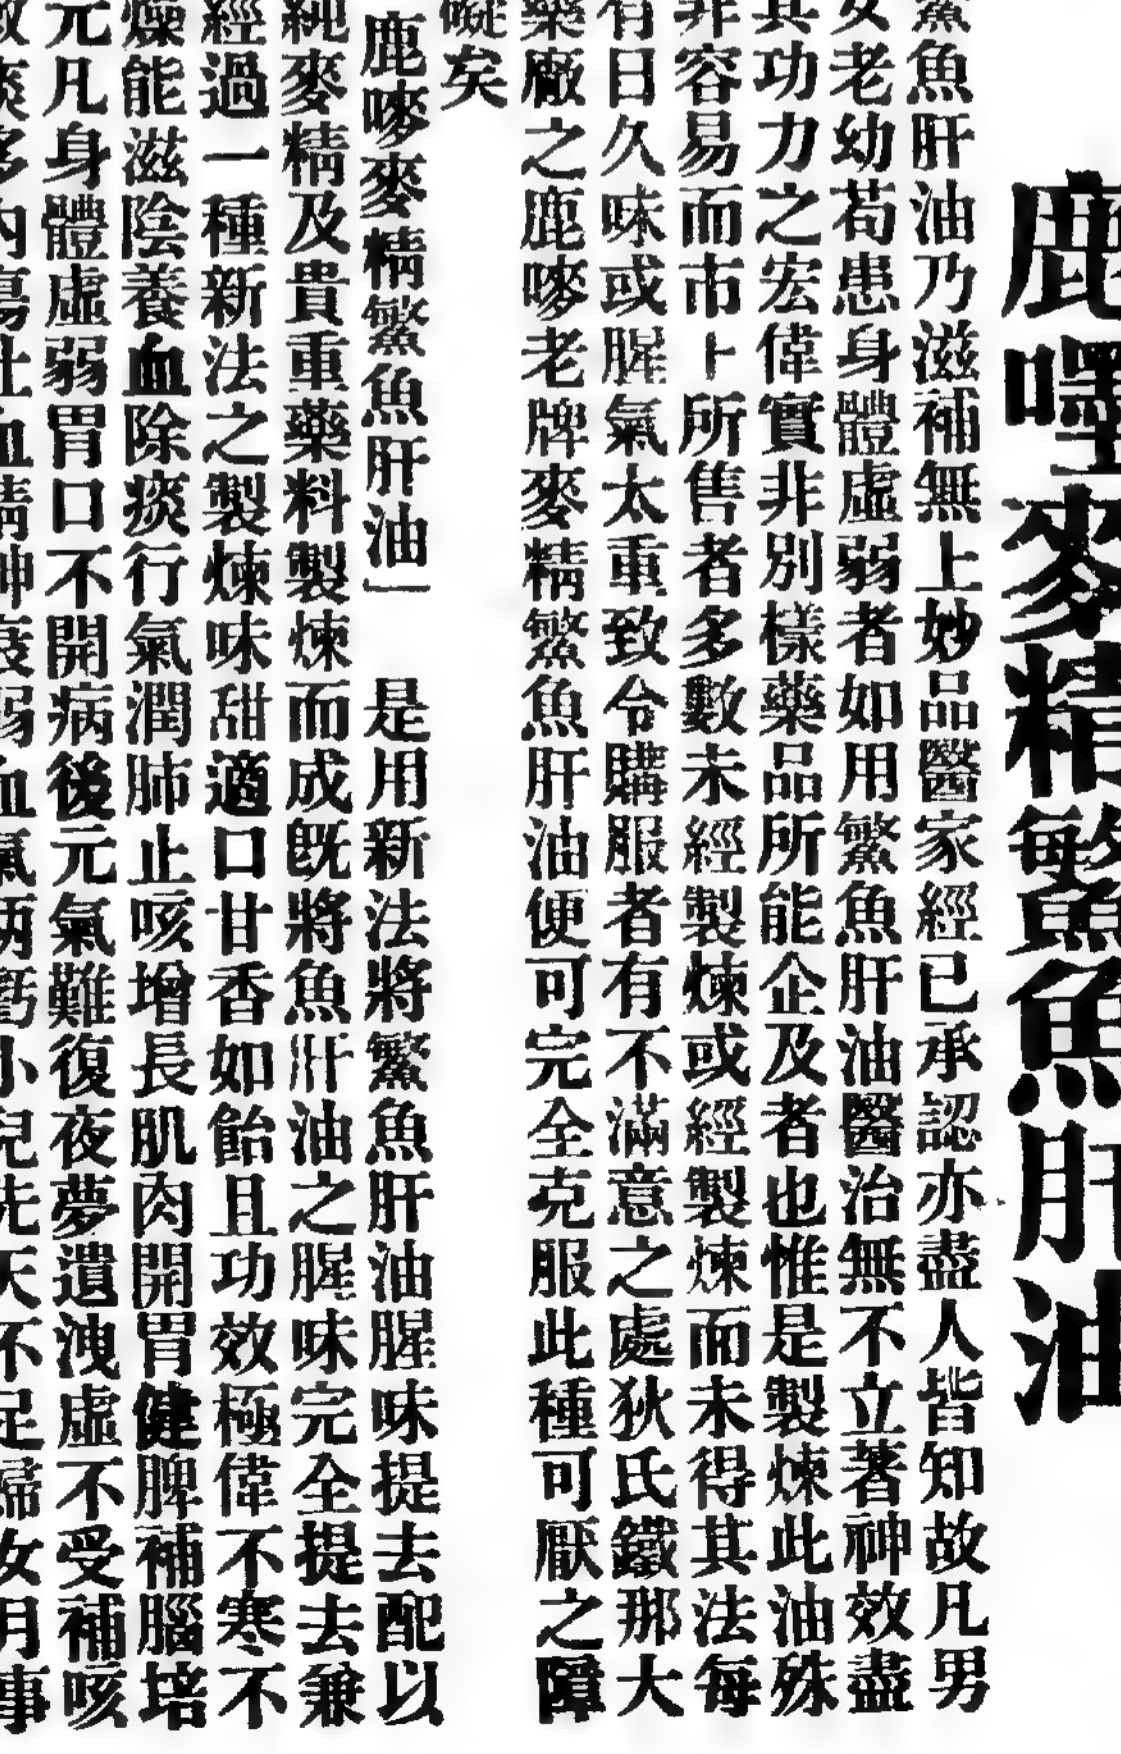 鹿嘜麥精鰵魚肝油
鰵魚肝油乃滋補無上妙品醫家經已承認亦盡人皆知故凡男
女老幼苟患身體虛弱者如用鰵魚肝油醫治無不立著神效蓋
其功力之宏偉實非別樣藥品所能企及者也惟是製煉此油殊
非容易而市上所售者多數未經製煉或經製煉而未得其法每
有日久味或腥氣太重致令購服者有不滿意之處狄氏鐵那大
藥廠之鹿嘜老牌麥精鰵魚肝油便可完全克服此種可厭之障
礙矣
鹿嘜麥精鰵魚肝油」 是用新法將鰵魚肝油腥味提去配以
純麥精及貴重藥料製煉而成既將魚肝油之腥味完全提去兼
經過一種新法之製煉味甜適口甘香如飴且功效極偉不寒不
燥能滋陰養血除痰行氣潤肺止咳增長肌肉開胃健脾補腦培
元凡身體虛弱胃口不開病後元氣難復夜夢遺洩虛不受補咳
嗽痰多內傷吐血精神衰弱血氣兩虧小兒先天不足婦女月事